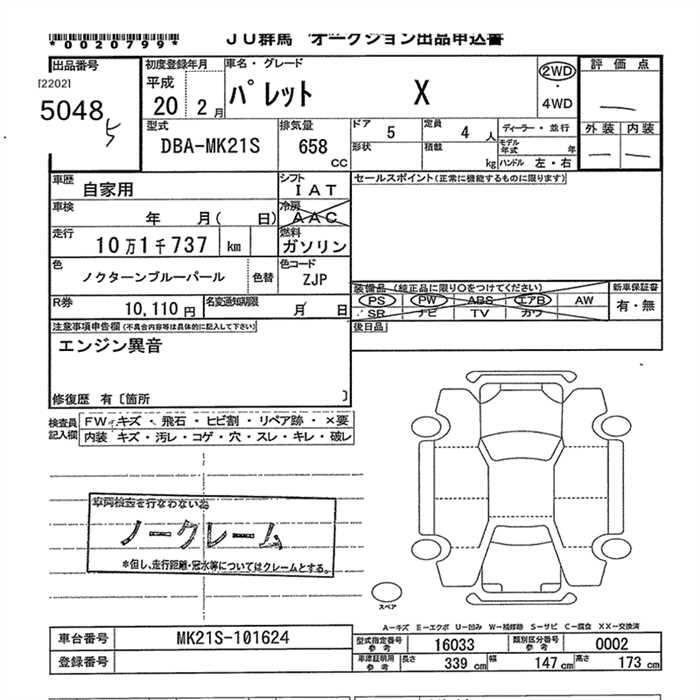 *0020799*
JU群馬 オークション出品申込書
出品番号
[2202]
5048
ち
初度登録年月
平成
20 2月
車名・グレード
パレット X
2WD
4WD
評価点
外装 内装
型式
DBA-MK21S
排気量
658
cc
ドア
5
定員
4 人
ディーラー・並行
形状
積載
kg
モデル年式 年
ハンドル 左・右
車歴
自家用
シフト
IAT
車検
年 月( 日)
冷房
AAC
走行
10万1千737 km
燃料
ガソリン
色
ノクターンブルーパール
色替
色コード
ZJP
R券
10,110円
名変通知期限
月 日
セールスポイント(正常に機能するものに限ります)
装備品 (純正品に限り○をつけてください)
PS PW ABS エアB AW
SR ナビ TV カワ
新車保証書
有・無
後日品
注意事項申告欄(不具合内容等は具体的に記入して下さい)
エンジン異音
修復歴 有〔箇所 〕
検査員記入欄
FW キズ・飛石・ヒビ割・リペア跡・×要
内装 キズ・汚レ・コゲ・穴・スレ・キレ・破レ
車両検査を行なわない為
ノークレーム
*但し、走行距離・冠水等についてはクレームとする。
スペア
A―キズ E―エクボ U―凹み W―補修跡 S―サビ C―腐食 XX―交換済
車台番号
MK21S-101624
型式指定番号
参考
16033
類別区分番号
参考
0002
登録番号
車庫証明用
参考
長さ 339 cm
幅 147 cm
高さ 173 cm